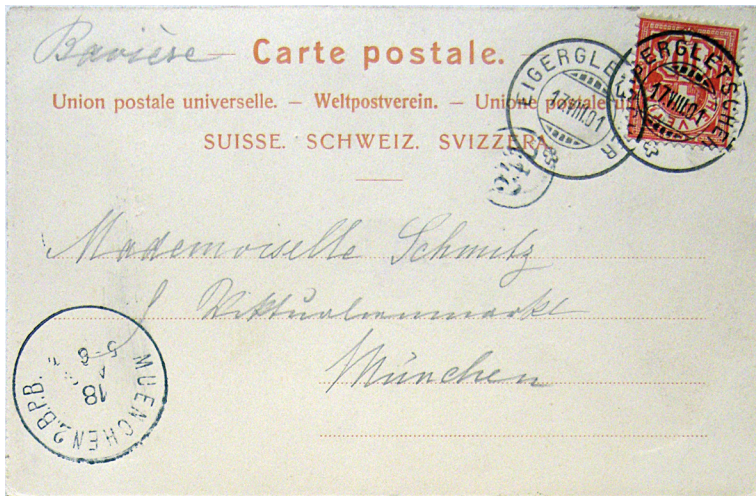 Bavière
Carte postale.
Union postale universelle. — Weltpostverein. — Unione postale
SUISSE. SCHWEIZ. SVIZZERA.
EIGERGLETSCHER
17.VIII.01
EIGERGLETSCHER
17.VIII.01
Mademoiselle Schmitz
Viktualienmarkt
München
MUENCHEN 2.B.P.B.
18
5-6